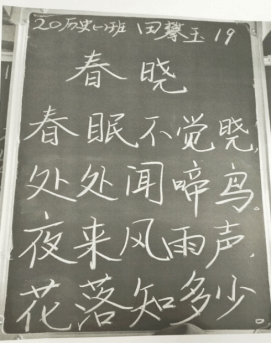 20历史(1)班 田馨玉 19
春晓
春眠不觉晓,
处处闻啼鸟。
夜来风雨声,
花落知多少。